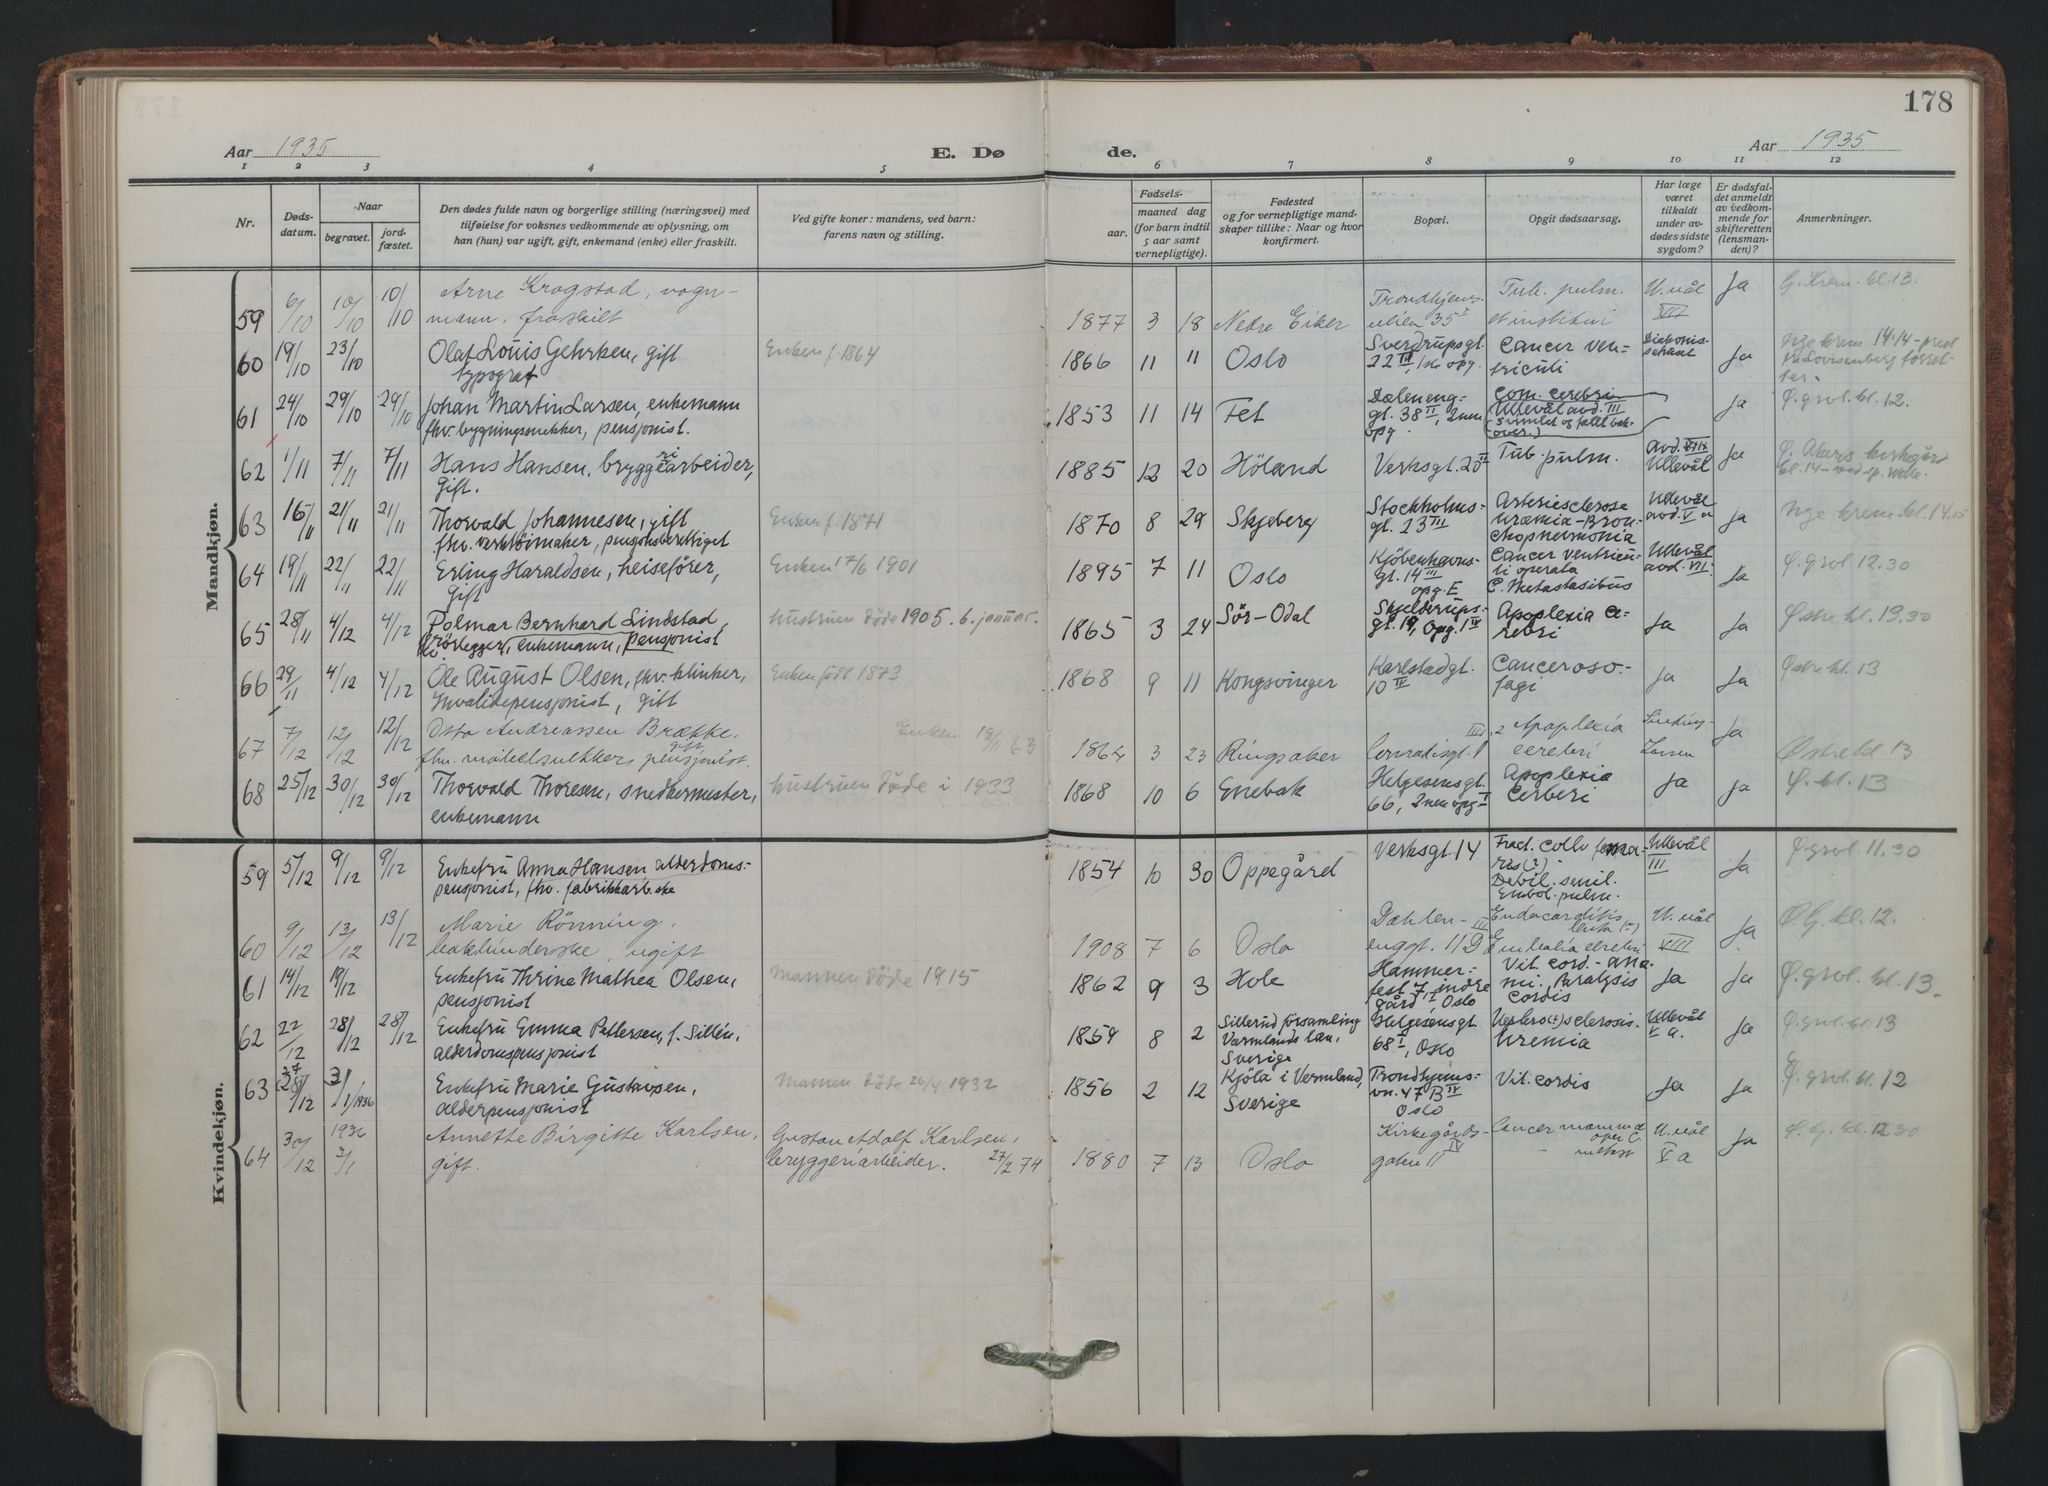 178
Aar 1935
E. Dø
de.
Aar 1935
1 2 3 4 5 6 7 8 9 10 11 12
Nr.
Døds-
datum.
Naar
begravet.
jord-
fæstet.
Den dødes fulde navn og borgerlige stilling (næringsvei) med
tilføielse for voksnes vedkommende av oplysning, om
han (hun) var ugift, gift, enkemand (enke) eller fraskilt.
Ved gifte koner: mandens, ved barn:
farens navn og stilling.
Fødsels-
aar.
maaned dag
(for barn indtil
5 aar samt
vernepligtige).
Fødested
og for vernepligtige mand-
skaper tillike: Naar og hvor
konfirmert.
Bopæl.
Opgit dødsaarsag.
Har læge
været
tilkaldt
under av-
dødes sidste
sygdom?
Er dødsfal-
det anmeldt
av vedkom-
mende for
skifteretten
(lensman-
den)?
Anmerkninger.
Mandkjøn.
59 6/10 10/10 10/10 Arne Krogstad, vogn-
mann, fraskilt
1877 3 18 Nedre Eiker
Trondhjems-
veien 35 I
Tub. pulm.
U.vål
VII
Ja
G. Krem. kl. 13.
60 19/10 23/10 Olaf Louis Gehrken, gift
typograf
Enken f. 1864
1866 11 11 Oslo
Sverdrupsgt.
22 III
Cancer ven-
triculi
Ja
61 24/10 29/10 29/10 Johan Martin Larsen, enkemann
fhv. bygningssnekker, pensjonist.
1853 11 14 Fet
Dæleneng-
gt. 38 II, 2nen
opg.
Com. cerebri
(Ullevål avd. III
svimlet og falt bak-
over)
Ja
Ø. grvl. kl. 12.
62 1/11 7/11 7/11 Hans Hansen, bryggeriarbeider,
gift.
1885 12 20 Höland
Verksgt. 20 II
Tub. pulm.
Ullevål
Ja
63 16/11 21/11 21/11 Thorvald Johannesen, gift
fhv. verktöimaker, pensjonsberettiget
Enken f. 1871
1870 8 29 Skjeberg
Stockholms-
gt. 23 III
Arteriesclerose
Uræmia-Bron-
chopneumonia
Ullevål
avd. V a
Ja
Nye krem. kl. 14.15
64 19/11 22/11 22/11 Erling Haraldsen, heisefører,
gift
Enken 17/6 1901
1895 7 11 Oslo
Kjöbenhavns-
gt. 14 III
opg. E
Cancer ventricu-
li operata
C. Metastasibus
Ullevål
avd. VII.
Ja
Ø. grvl. 12.30
65 28/11 4/12 4/12 Polmar Bernhard Lindstad
rörlegger, enkemann, pensjonist
hustruen døde 1905. 6. januar.
1865 3 24 Sör-Odal
Skjelderups-
gt. 19, Opg. 1 IV
Apoplexia ce-
rebri
Ja Ja
Østre kl. 13.30
66 29/11 4/12 4/12 Ole August Olsen, fhv. klinker,
Invalidepensjonist, gift
Enken født 1873
1868 9 11 Kongsvinger
Karlstadgt.
10 IV
Cancer oso-
fagi
Ja Ja
Østre kl. 13
67 7/12 12/12 12/12 Otto Andreassen Brække,
fhv. møbelsnekker, pensjonist. gift
Enken 18/11 63
1864 3 23 Ringsaker
Conradisgt. 1
Apoplexia
cerebri
Ja
Østre kl. 13
68 25/12 30/12 30/12 Thorvald Thoresen, snedkermester,
enkemann
hustruen døde i 1933
1868 10 6 Enebak
Helgesensgt.
66, 2nen opg. I
Apoplexia
Cerberi
Ja Ja
Ø. kl. 13
Kvindekjøn.
59 5/12 9/12 9/12 Enkefru Anna Hansen alderdoms-
pensjonist, fhv. fabrikkarb.ske
1854 10 30 Oppegård
Verksgt. 14
Fract. colli femo-
ris(?) -
Debil. senil.
Embol. pulm.
Ullevål
III
Ja
Ø. grvl. 11.30
60 9/12 13/12 13/12 Marie Rönning,
bokbinderske, ugift
1908 7 6 Oslo
Dæhlen-
enggt. 11 D
Endocarditis
lenta
U.vål
VIII
Ja
Ø.G. kl. 12.
61 14/12 19/12 Enkefru Thrine Mathea Olsen,
pensjonist
Mannen døde 1915
1862 9 3 Hole
Hammer-
fest 7, I indre
gård Oslo
Vit. cord. - ana-
mi. Paralysis
cordis
Ja Ja
Ø. grvl. kl. 13.
62 22/12 28/12 28/12 Enkefru Emma Pettersen, f. Sillén,
alderdomspensjonist
1859 8 2 Sillerud församling
Værmlands län,
Sverige
Helgesensgt.
68 I, Oslo
Uremia
Ullevål
V a.
Ja
Ø. grvl. kl. 13
63 27/12 3/1/1936 Enkefru Marie Gustavsen,
alderpensjonist
Mannen døde 26/4 1932
1856 2 12 Kjöla i Vermland,
Sverige
Trondhjems-
vn. 47 B IV
Oslo
Vit. cordis
Ja Ja
Ø. grvl. kl. 12
64 30/12 1936 3/1 Annette Birgitte Karlsen,
gift.
Gustav Adolf Karlsen,
bryggeriarbeider. 27/2 74
1880 7 13 Oslo
Kirkegårds-
gaten 11 IV
Cancer mammæ
oper. C.
metast
U.vål
V a
Ja
Ø. G. kl. 12.30